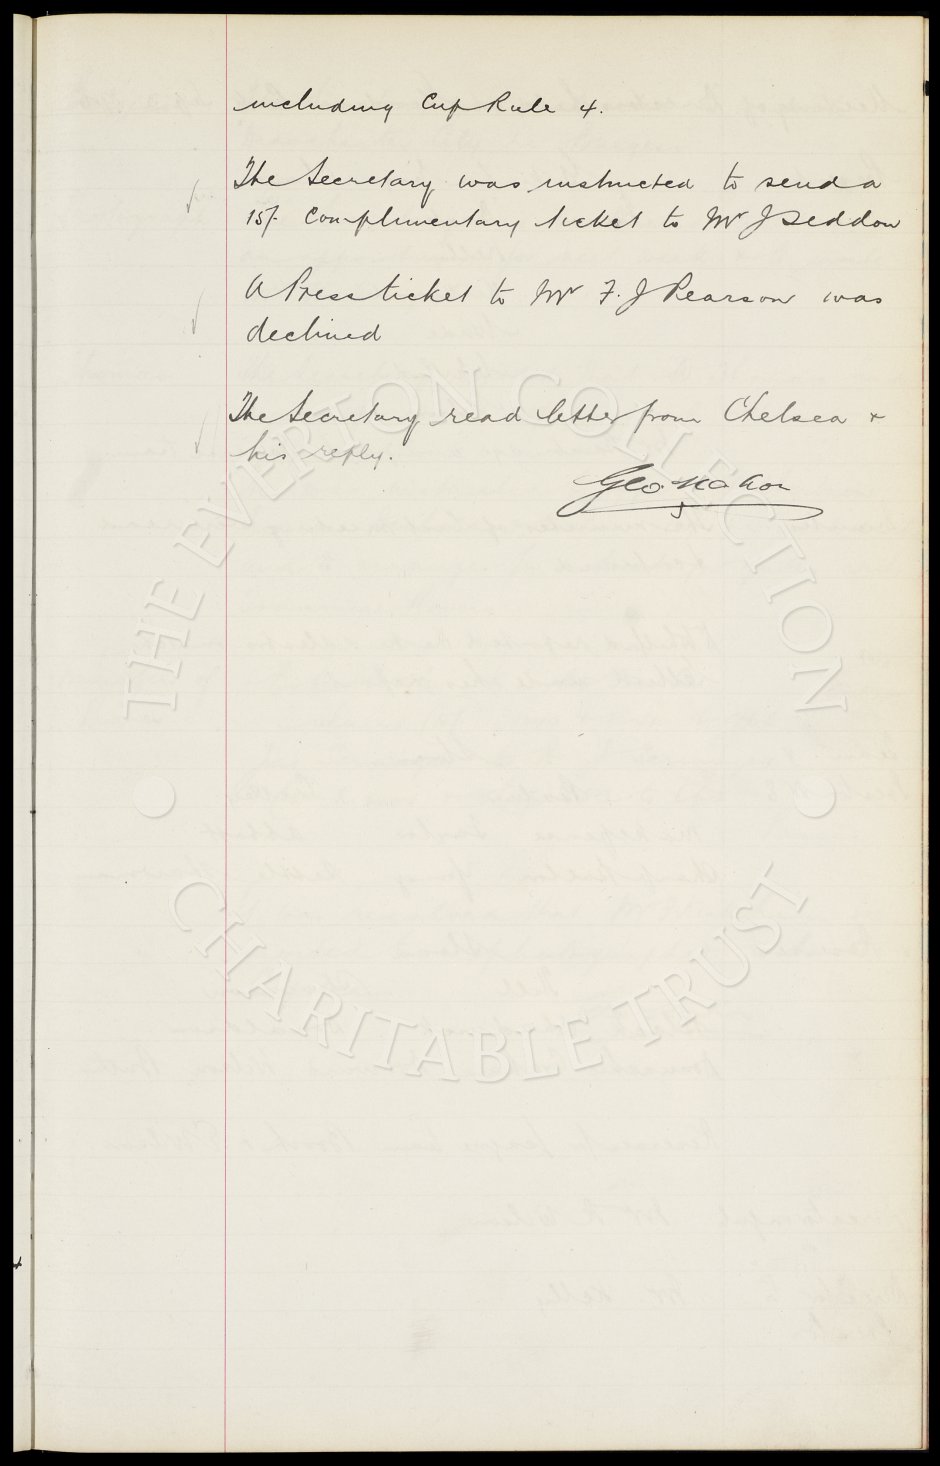 including Cup Rule 4.
The Secretary was instructed to send a
15/- Complimentary ticket to Mr J Seddon
A Press ticket to Mr F. J Pearson was
declined
The Secretary read letter from Chelsea &
his reply.
Geo Mahon
THE EVERTON COLLECTION
CHARITABLE TRUST